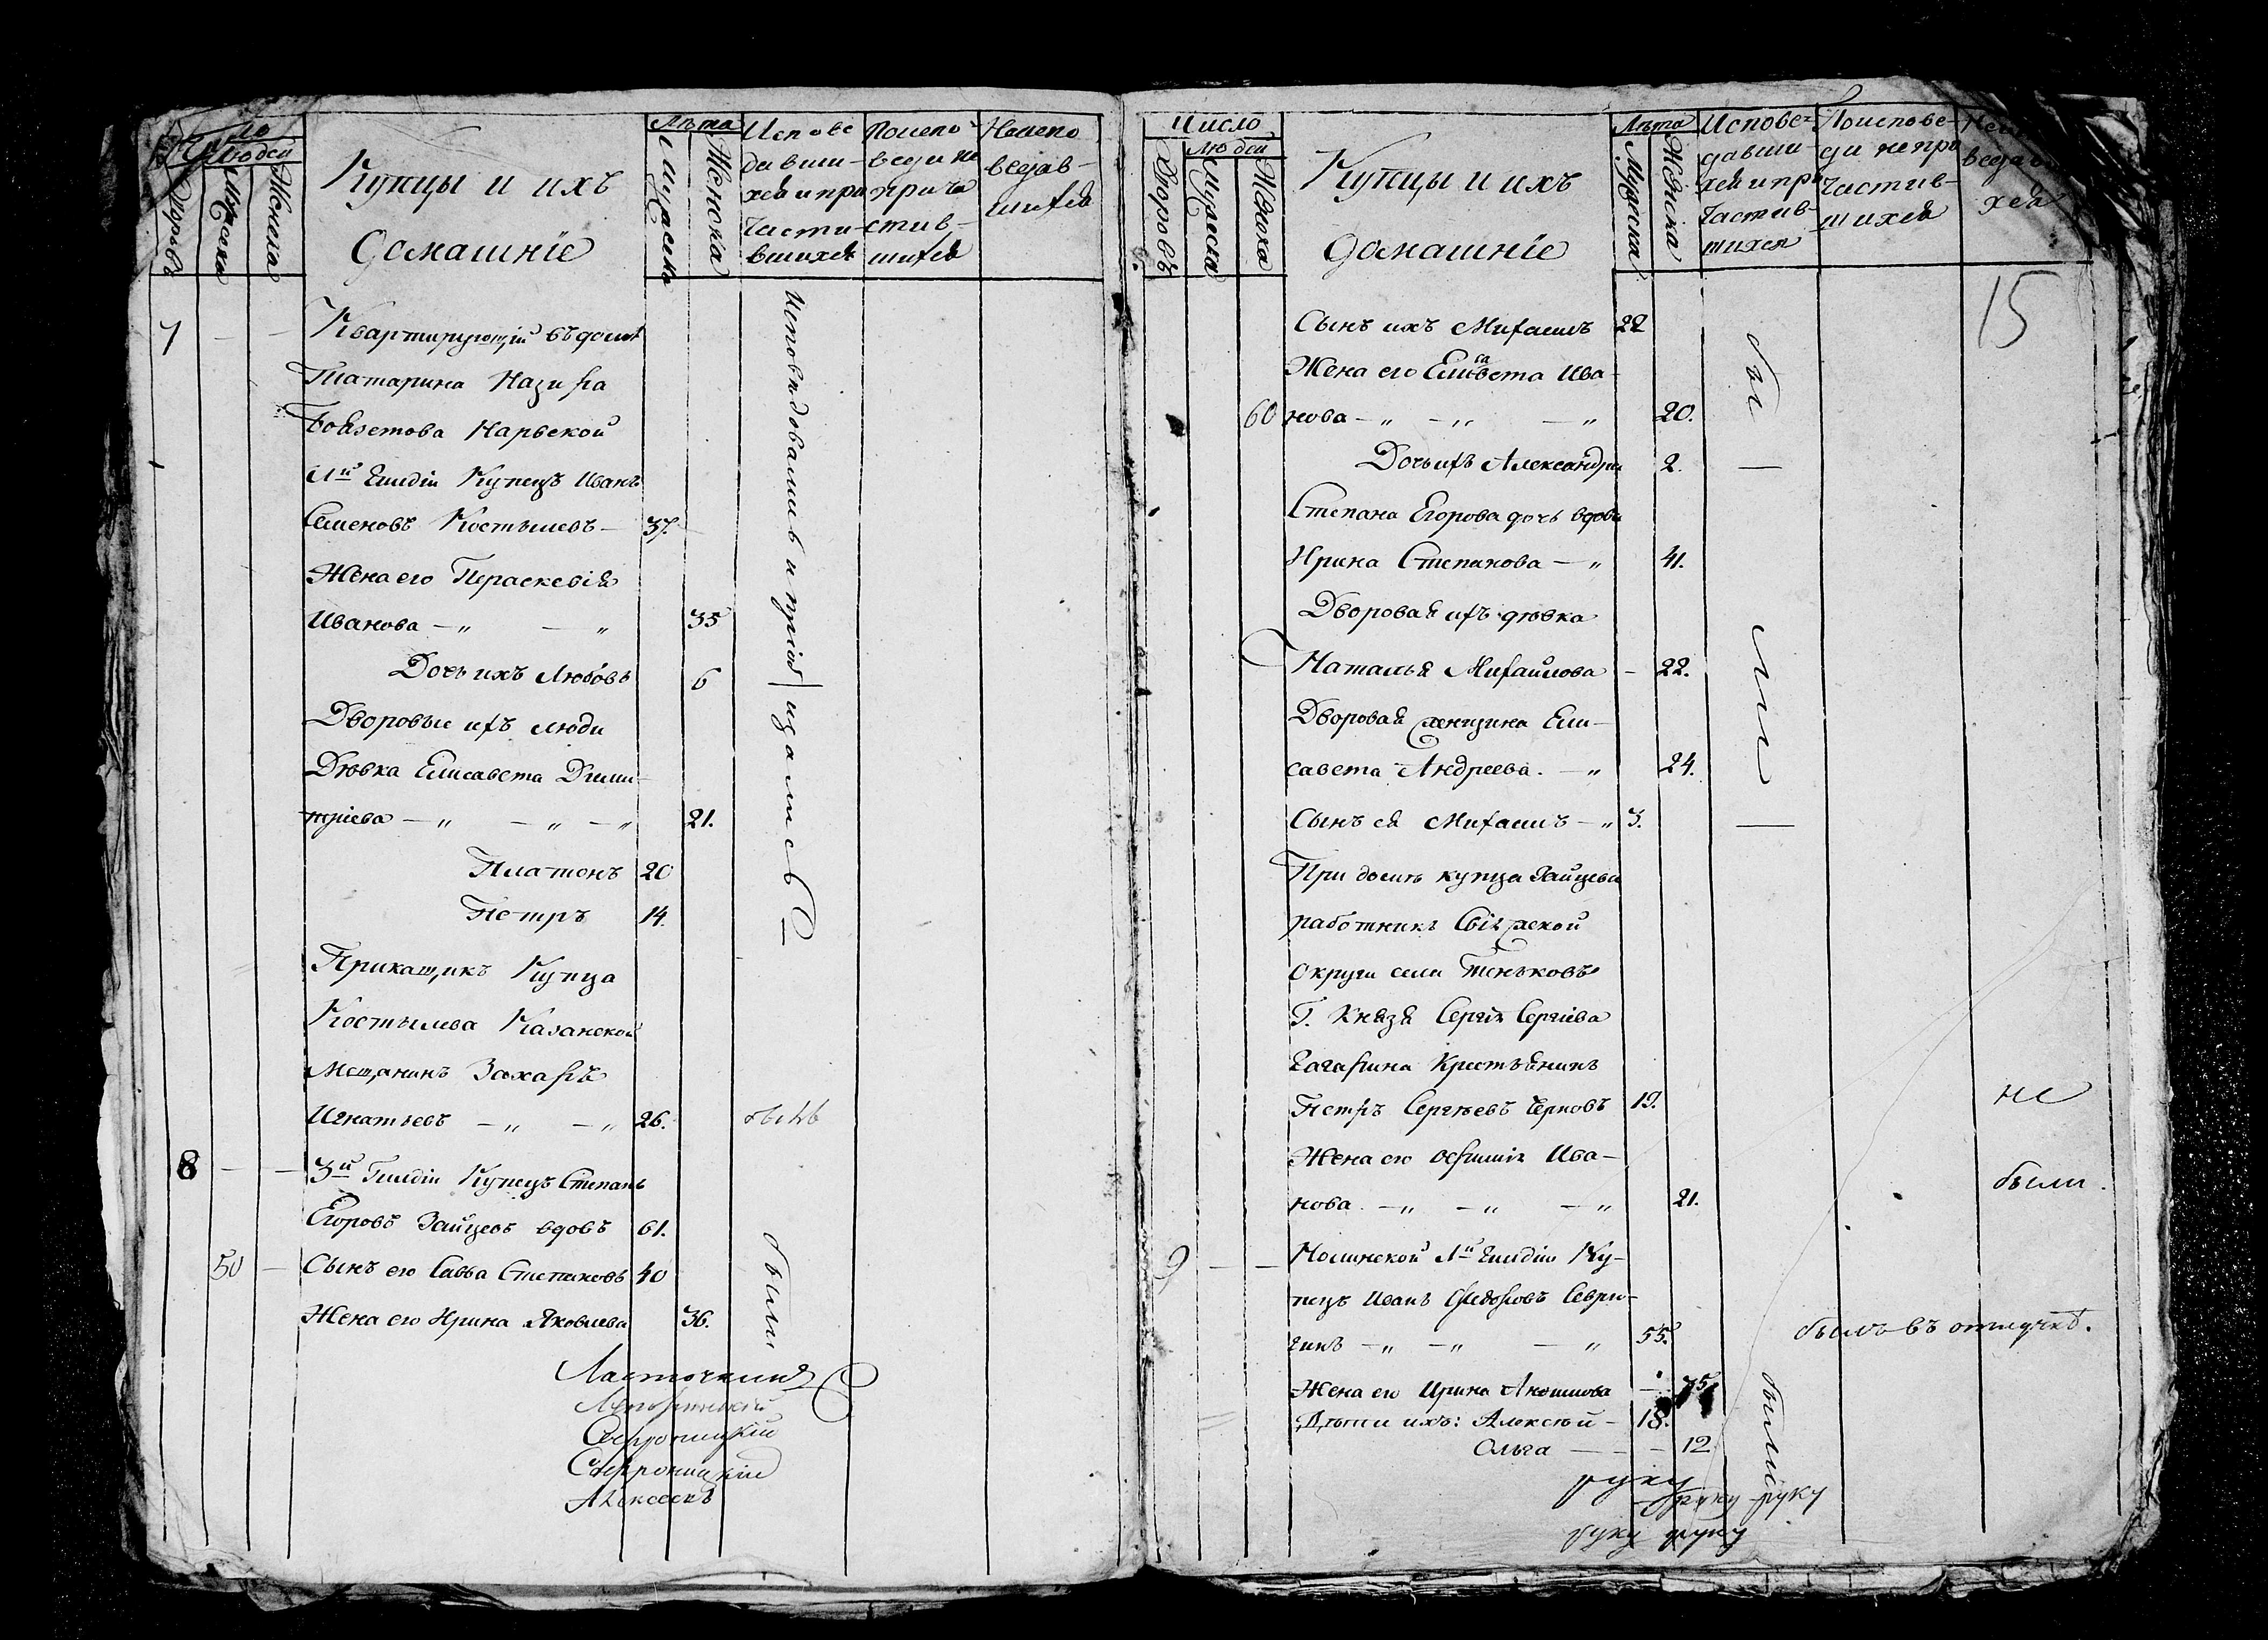 Число
Людей
Дворовъ
Мужеска
Женска
Купцы и ихъ
домашніе
Лѣта
Мужеска
Женска
Испове
давши-
хся и при
части-
вшихся
Поиспо
веди не
прича
стив-
шихся
Неиспо
ведав-
шихся
7 Квартирующій въ домѣ
Татарина Назира
Боязетова Нарвской
1й Гилдіи Купецъ Иванъ
Семеновъ Костылевъ — 37.
Жена его Параскевія
Иванова — „ — „ 35
Дочь ихъ Любовь 6
Дворовые ихъ люди
Дѣвка Елисавета Дими-
тріева — „ — „ — „ 21.
Платонъ 20
Петръ 14.
Исповѣдовались и пріобщались
Прикащикъ Купца
Костылева Казанской
Мещанинъ Захаръ
Игнатьевъ — „ — „ 26. былъ
8 — — 3й Гилдіи Купецъ Степанъ
Егоровъ Зайцевъ вдовъ 61.
50 — Сынъ его Савва Степановъ 40
Жена его Ирина Яковлева 36.
были
Ласточкинъ
Алексеевъ
Число
Людей
Дворовъ
Мужеска
Женска
Купцы и ихъ
домашніе
Лѣта
Мужеска
Женска
Испове-
давши-
хся и при
частив-
шихся
Поиспове-
ди не при
частив-
шихся
Неис
ведав
хся
15
Сынъ ихъ Михаилъ 22
Жена его Елисавета Ива-
60 нова — „ — „ — „ 20.
Дочь ихъ Александра 2. —
Степана Егорова дочь вдова
Ирина Степанова — „ 41.
Дворовая ихъ дѣвка
Наталья Михайлова — 22.
Дворовая женщина Ели-
савета Андреева. — „ 24.
были
Сынъ ея Михаилъ — „ 3. —
При домѣ купца Зайцева
работникъ Свіяжской
округи села Теньковъ
Г. Князя Сергія Сергіева
Гагарина Крестьянинъ
Петръ Сергѣевъ Черновъ 19. не
Жена его Ива-
нова. — „ — „ — „ 21. были.
9 — — Малинской 1й Гилдіи Ку-
пецъ Иванъ Федоровъ Севри-
гинъ — „ — „ — „ 55. былъ въ отлучкѣ.
Жена его Ирина Акинѳова —
Дѣти ихъ: Алексѣй — 18.
Ольга — — — 12
были
руку
руку руку
руку руку